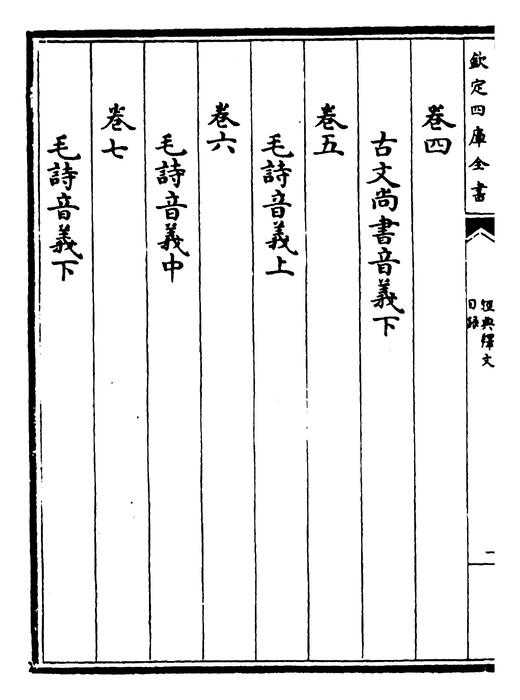 欽定四庫全書
經典釋文
目錄
一
卷四
古文尚書音義下
卷五
毛詩音義上
卷六
毛詩音義中
卷七
毛詩音義下